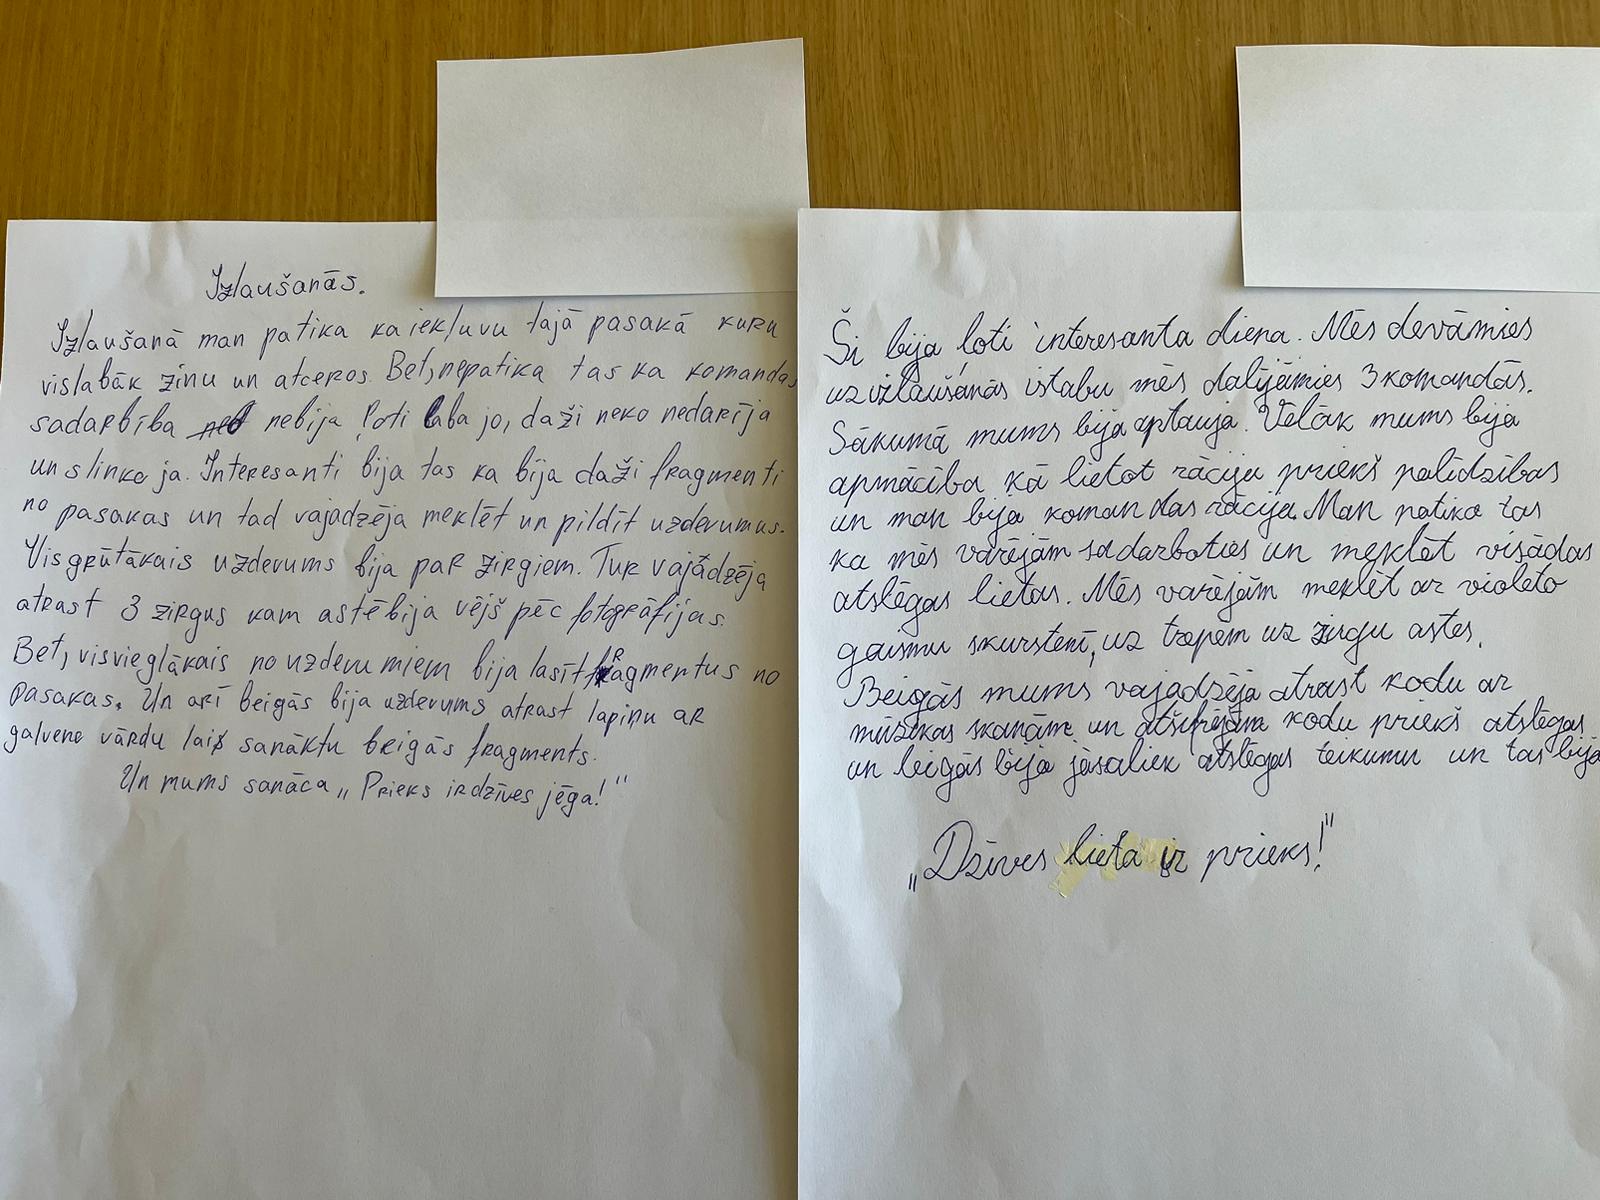 Izlaušanās.
Izlaušanā man patika ka iekļuvu tajā pasakā kuru
vislabāk zinu un atceros. Bet, nepatika tas ka komandas
sadarbība nebija ļoti laba jo, daži neko nedarīja
un slinkoja. Interesanti bija tas ka bija daži fragmenti
no pasakas un tad vajadzēja meklēt un pildīt uzdevumus.
Visgrūtākais uzdevums bija par zirgiem. Tur vajādzēja
atrast 3 zirgus kam astē bija vējš pēc fotogrāfijas.
Bet, visvieglākais no uzdevumiem bija lasīt fragmentus no
pasakas. Un arī beigās bija uzdevums atrast lapiņu ar
galveno vārdu lai sanāktu beigās fragments.
Un mums sanāca „Prieks ir dzīves jēga!"
Ši bija ļoti interesanta diena. Mēs devāmies
uz izlaušanās istabu mēs dalījāmies 3 komandās.
Sākumā mums bija aptauja. Vēlāk mums bija
apmācība kā lietot rāciju priekš palīdzības
un man bija komandas rācija. Man patika tas
ka mēs varējām sadarboties un meklēt visādas
atslēgas lietas. Mēs varējām meklēt ar violeto
gaismu skurstenī, uz trepēm uz zirgu astes.
Beigās mums vajadzēja atrast kodu ar
mūzikas skaņām un atšifrējām kodu priekš atslēgas
un beigās bija jāsaliek atslēgas teikumu un tas bija
„Dzīves lieta ir prieks!"